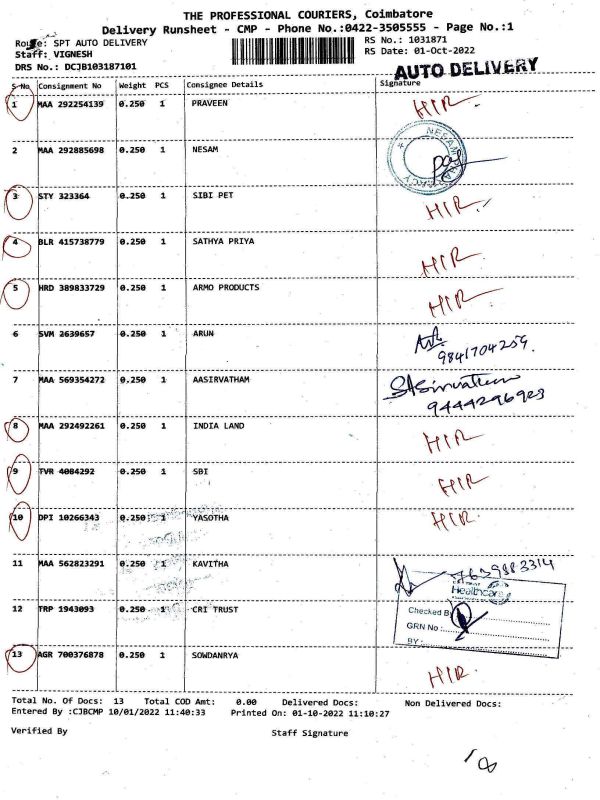 THE PROFESSIONAL COURIERS, Coimbatore
Delivery Runsheet - CMP - Phone No.:0422-3505555 - Page No.:1
Route: SPT AUTO DELIVERY
RS No.: 1031871
Staff: VIGNESH
RS Date: 01-Oct-2022
DRS No.: DCJB103187101
AUTO DELIVERY
S No Consignment No Weight PCS Consignee Details Signature
1 MAA 292254139 0.250 1 PRAVEEN HIR
2 MAA 292885698 0.250 1 NESAM
3 STY 323364 0.250 1 SIBI PET HIR
4 BLR 415738779 0.250 1 SATHYA PRIYA HIR
5 HRD 389833729 0.250 1 ARMO PRODUCTS HIR
6 SVM 2639657 0.250 1 ARUN 9841704259.
7 MAA 569354272 0.250 1 AASIRVATHAM 9444296923
8 MAA 292492261 0.250 1 INDIA LAND HIR
9 TVR 4084292 0.250 1 SBI HIR
10 DPI 10266343 0.250 1 YASOTHA HIR
11 MAA 562823291 0.250 1 KAVITHA 7639883314
Healthcare
12 TRP 1943093 0.250 1 CRI TRUST Checked By
GRN No :
BY :
13 AGR 700376878 0.250 1 SOWDANRYA HIR
Total No. Of Docs: 13 Total COD Amt: 0.00 Delivered Docs: Non Delivered Docs:
Entered By :CJBCMP 10/01/2022 11:40:33 Printed On: 01-10-2022 11:10:27
Verified By Staff Signature